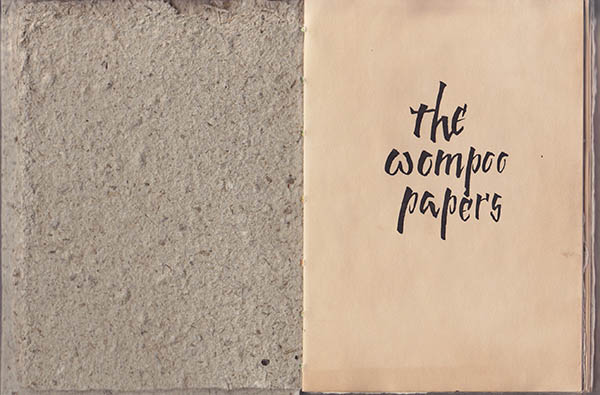 the
wompoo
papers